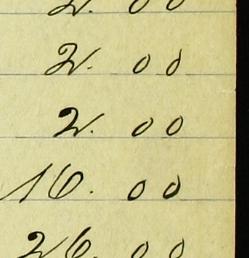 2. 00
2. 00
2. 00
16. 00
26. 00